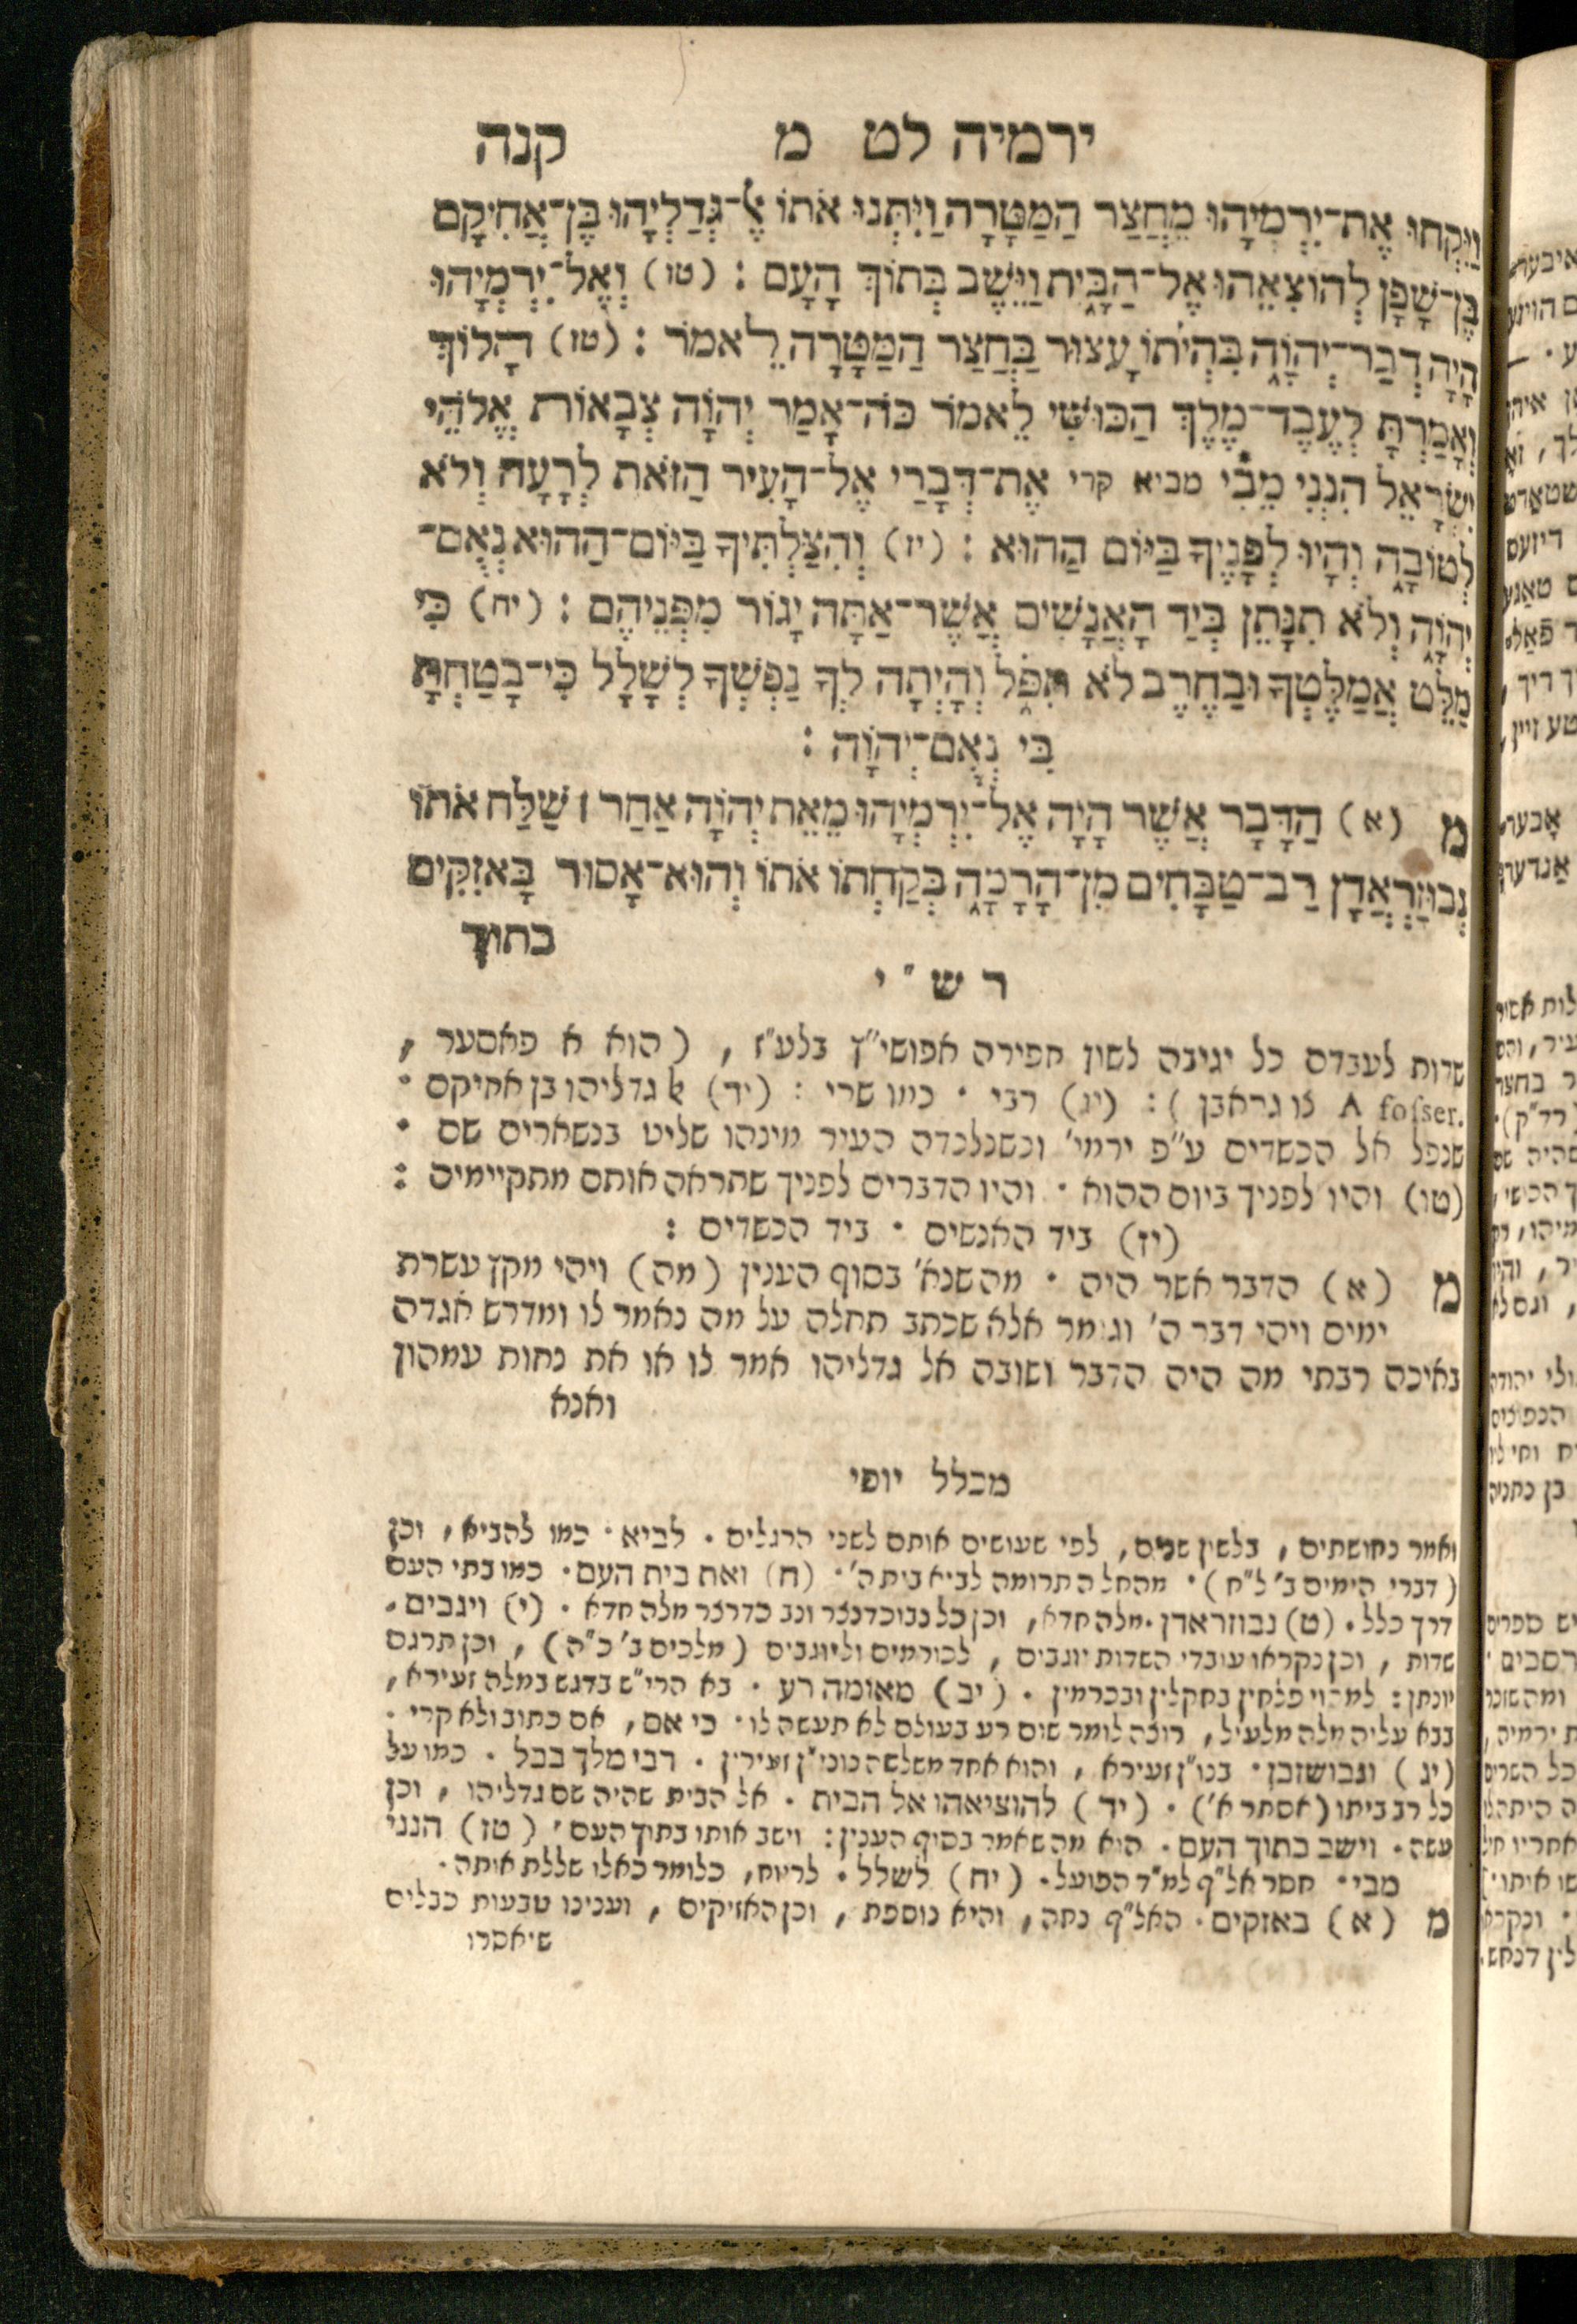 ירמיה לט מ קנה
וַיִּקְחוּ אֶת־יִרְמְיָהוּ מֵחֲצַר הַמַּטָּרָה וַיִּתְּנוּ אֹתוֹ אֶל־גְּדַלְיָהוּ בֶּן־אֲחִיקָם
בֶּן־שָׁפָן לְהוֹצִאֵהוּ אֶל־הַבָּיִת וַיֵּשֶׁב בְּתוֹךְ הָעָם : (טו) וְאֶל־יִרְמְיָהוּ
הָיָה דְבַר־יְהוָה בִּהְיֹתוֹ עָצוּר בַּחֲצַר הַמַּטָּרָה לֵאמֹר : (טז) הָלוֹךְ
וְאָמַרְתָּ לְעֶבֶד־מֶלֶךְ הַכּוּשִׁי לֵאמֹר כֹּה־אָמַר יְהוָה צְבָאוֹת אֱלֹהֵי
יִשְׂרָאֵל הִנְנִי מֵבִי מביא קרי אֶת־דְּבָרַי אֶל־הָעִיר הַזֹּאת לְרָעָה וְלֹא
לְטוֹבָה וְהָיוּ לְפָנֶיךָ בַּיּוֹם הַהוּא : (יז) וְהִצַּלְתִּיךָ בַיּוֹם־הַהוּא נְאֻם־
יְהוָה וְלֹא תִנָּתֵן בְּיַד הָאֲנָשִׁים אֲשֶׁר־אַתָּה יָגוֹר מִפְּנֵיהֶם : (יח) כִּי
מַלֵּט אֲמַלֶּטְךָ וּבַחֶרֶב לֹא תִפֹּל וְהָיְתָה לְךָ נַפְשְׁךָ לְשָׁלָל כִּי־בָטַחְתָּ
בִּי נְאֻם־יְהוָה :
מ (א) הַדָּבָר אֲשֶׁר הָיָה אֶל־יִרְמְיָהוּ מֵאֵת יְהוָה אַחַר ׀ שַׁלַּח אֹתוֹ
נְבוּזַרְאֲדָן רַב־טַבָּחִים מִן־הָרָמָה בְּקַחְתּוֹ אֹתוֹ וְהוּא־אָסוּר בָּאזִקִּים
בתוך
ר ש " י
שדות לעבדם כל יגיבה לשון חפירה אפושי"ן בלע"ז , (הוא א פאסער ,
A fosser. צו גראבן ) : (יג) רבי · כמו שרי : (יד) אל גדליהו בן אחיקם ·
שנפל אל הכשדים ע"פ ירמי' וכשנלכדה העיר מינהו שליט בנשארים שם ·
(טו) והיו לפניך ביום ההוא · והיו הדברים לפניך שתראה אותם מתקיימיה :
(יז) ביד האנשים · ביד הכשדים :
מ (א) הדבר אשר היה · מה שנא' בסוף הענין (מה) ויהי מקץ עשרת
ימים ויהי דבר ה' וגומר אלא שכתב תחלה על מה נאמר לו ומדרש אגדה
באיכה רבתי מה היה הדבר ושובה אל גדליהו אמר לו או את נחות עמהון
ואנא
מכלל יופי
ואמר נחושתים , בלשון שנים, לפי שעושים אותם לשני הרגלים . לביא · כמו להביא, וכן
(דברי הימים ב' ל"ח) · מהחל התרומה לביא בית ה' · (ח) ואת בית העם · כמו בתי העם
דרך כלל . (ט) נבוזראדן . מלה חדא, וכן כל נבוכדנצר וכב כדרצר מלה חדא . (י) ויגבים .
שדות , וכן נקראו עובדי השדות יוגבים , לכורמים וליוגבים (מלכים ב' כ"ה) , וכן תרגם
יונתן : למהוי פלחין בחקלין ובכרמין . (יב) מאומה רע . בא הרי"ש בדגש במלה זעירא,
בבא עליה מלה מלעיל, רוצה לומר שום רע בעולם לא תעשה לו · כי אם, אם כתוב ולא קרי .
(יג) ונבושזבן · בנו"ן זעירא , והוא אחד משלשה נוני"ן זעירין . רבי מלך בבל . כמו על
כל רב ביתו (אסתר א') . (יד) להוציאהו אל הבית . אל הבית שהיה שם גדליהו , וכן
עשה . וישב בתוך העם . הוא מה שאמר בסוף הענין : וישב אותו בתוך העם · (טז) הנני
מבי · חסר אל"ף למ"ד הפועל . (יח) לשלל . לריוח, כלומר כאלו שללת אותה .
מ (א) באזקים . האל"ף נחה, והיא נוספת , וכן האזיקים , וענינו טבעות כבלים
שיאסרו